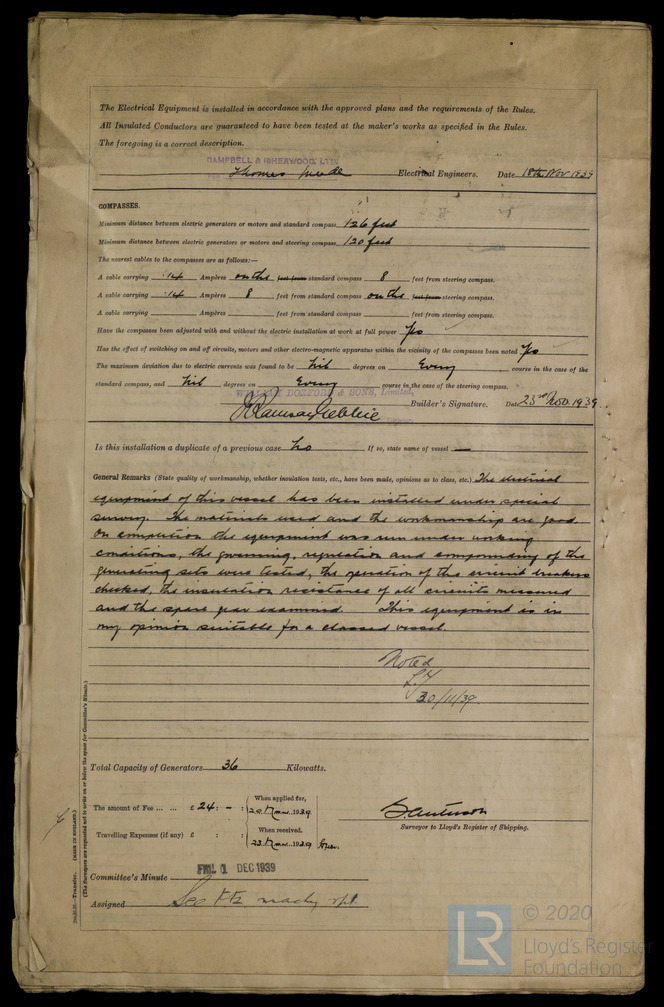 The Electrical Equipment is installed in accordance with the approved plans and the requirements of the Rules.
All Insulated Conductors are guaranteed to have been tested at the maker's works as specified in the Rules.
The foregoing is a correct description.
CAMPBELL & ISHERWOOD, LTD
Thomas Electrical Engineers. Date 18th Nov 1939
COMPASSES.
Minimum distance between electric generators or motors and standard compass 126 feet
Minimum distance between electric generators or motors and steering compass 120 feet
The nearest cables to the compasses are as follows:—
A cable carrying .14 Ampères on the feet from standard compass 8 feet from steering compass.
A cable carrying .14 Ampères 8 feet from standard compass on the feet from steering compass.
A cable carrying Ampères feet from standard compass feet from steering compass.
Have the compasses been adjusted with and without the electric installation at work at full power Yes
Has the effect of switching on and off circuits, motors and other electro-magnetic apparatus within the vicinity of the compasses been noted Yes
The maximum deviation due to electric currents was found to be Nil degrees on Every course in the case of the
standard compass, and Nil degrees on Every course in the case of the steering compass.
DOXFORD & SONS, Limited,
Builder's Signature. Date 23rd Nov. 1939.
Is this installation a duplicate of a previous case No If so, state name of vessel —
General Remarks (State quality of workmanship, whether insulation tests, etc., have been made, opinions as to class, etc.) The electrical
equipment of this vessel has been installed under special
survey. The materials used and the workmanship are good.
On completion the equipment was run under working
conditions, the governing, regulation and compounding of the
generating sets were tested, the operation of the circuit breakers
checked, the insulation resistance of all circuits measured
and the spare gear examined. This equipment is in
my opinion suitable for a classed vessel.
Noted
30/11/39.
Total Capacity of Generators 36 Kilowatts.
The amount of Fee ... ... £ 24 : - :
When applied for,
20 1939
Travelling Expenses (if any) £ : :
When received.
23 1939
Surveyor to Lloyd's Register of Shipping.
Committee's Minute FRI. 1 DEC 1939
Assigned See machy rpt.
(The Surveyors are requested not to write on or below the space for Committee's Minute.)
Transfer. (MADE IN ENGLAND.)
LR
© 2020
Lloyd's Register
Foundation